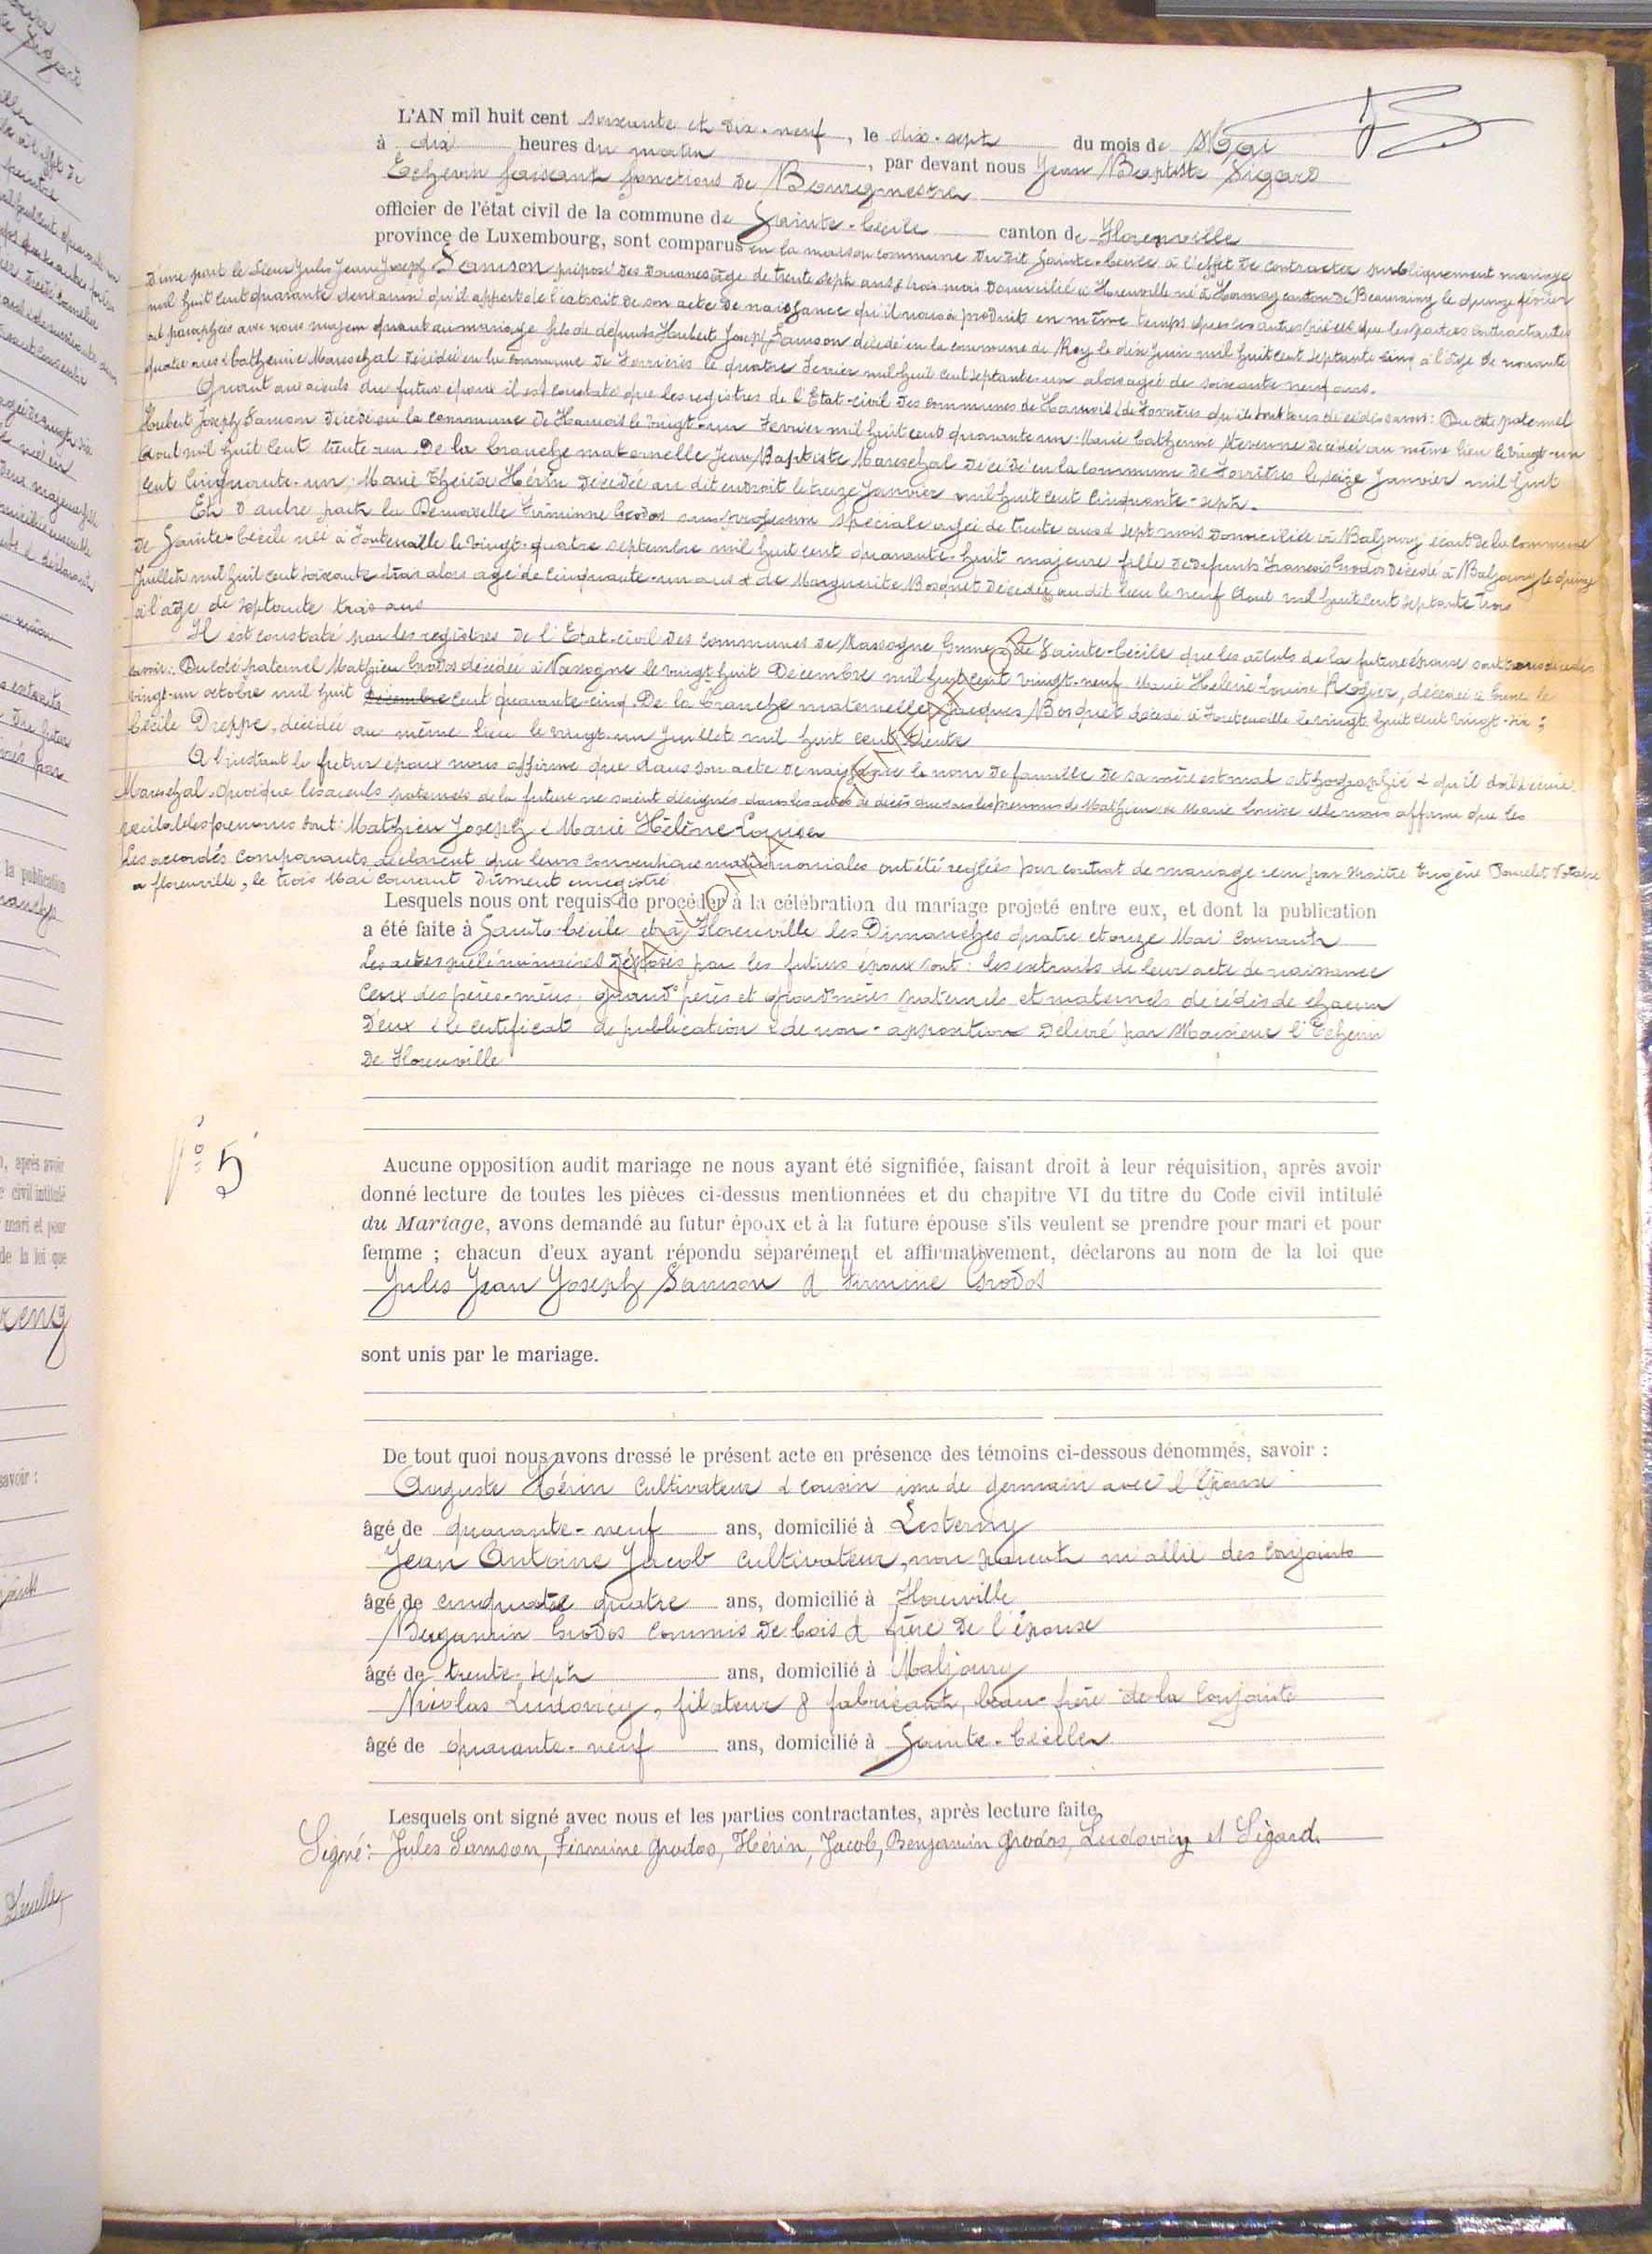 L'AN mil huit cent soixante et dix-neuf, le dix-sept du mois de Mai
à dix heures du matin, par devant nous Jean Baptiste Sigard
Echevin faisant fonctions de Bourgmestre
officier de l'état civil de la commune de Sainte-Cécile canton de Florenville
province de Luxembourg, sont comparus en la maison commune du dit Sainte-Cécile à l'effet de contracter publiquement mariage
d'une part le Sieur Jules Jean Joseph Samson préposé des douanes âgé de trente sept ans & trois mois domicilié à Florenville né à canton de Beauraing le quinze février
mil huit cent quarante deux ainsi qu'il appert de l'extrait de son acte de naissance qu'il nous a produit en même temps que les autres pièces que les parties contractantes
ont paraphées avec nous majeur quant au mariage fils de défunts Hubert Joseph Samson décédé en la commune de Roy le dix Juin mil huit cent septante cinq à l'âge de nonante
quatre ans & Catherine Mareschal décédée en la commune de Forrières le quatre Fevrier mil huit cent septante-un alors agée de soixante neuf ans.
Quant aux aïeuls du futur époux il est constaté que les registres de l'Etat-civil des communes de Hamois & de Forrières qu'ils sont tous décédés savoir: Du côté paternel
Hubert Joseph Samson décédé en la commune de Hamois le vingt-un Fevrier mil huit cent quarante un. Marie Catherine décédée au même lieu le vingt-un
Aout mil huit cent trente-un. De la branche maternelle Jean Baptiste Mareschal décédé en la commune de Forrières le seize Janvier mil huit
cent cinquante-un; Marie Thérèse Hérin décédée au dit endroit le treize Janvier mil huit cent cinquante-sept.
Et d'autre part la Demoiselle Firminne Grodos sans profession spéciale agée de trente ans & sept mois domiciliée à écart de la commune
de Sainte-Cécile née à Fontenoille le vingt-quatre septembre mil huit cent quarante-huit majeure fille de defunts François Grodos décédé à le quinze
Juillet mil huit cent soixante-trois alors agé de cinquante-un ans & de Marguerite Bosquet décédée au dit lieu le neuf Aout mil huit cent septante trois
à l'age de septante trois ans
Il est constaté par les registres de l'Etat-civil des communes de Nassogne, & de Sainte-Cécile que les aïeuls de la future épouse sont tous décédés
savoir: Du côté paternel Mathieu Grodos décédé à Nassogne le vingt huit Decembre mil huit cent vingt-neuf Marie Helene Louise Rogier, décédée à le
vingt-un octobre mil huit Décembre cent quarante-cinq. De la branche maternelle Jacques Bosquet décédé à Fontenoille le vingt huit cent vingt-six;
Cécile Dreppe, décédée au même lieu le vingt-un Juillet mil huit cent trente
A l'instant le futur époux nous affirme que dans son acte de naissance le nom de famille de sa mère est mal orthographié & qu'il doit s'écrire
Mareschal. Quoique les aïeuls paternels de la future ne soient désignés dans les actes de décès que sous les prénoms de Mathieu & de Marie Louise elle nous affirme que les
véritables prénoms sont: Mathieu Joseph & Marie Hélène Louise
Les accordés comparants déclarent que leurs conventions matrimoniales ont été reglées par contrat de mariage reçu par Maître Eugène Poncelet Notaire
a florenville, le trois Mai courant dûment enregistré
Lesquels nous ont requis de procéder à la célébration du mariage projeté entre eux, et dont la publication
a été faite à Sainte-Cécile et à Florenville les Dimanches quatre et onze Mai courant
Les actes préliminaires déposés par les futurs époux sont: les extraits de leur acte de naissance
Ceux des pères-mères, grands pères et grand'mères paternels et maternels décédés de chacun
d'eux & le certificat de publication & de non-opposition délivré par Monsieur l'Echevin
de Florenville
No 5
Aucune opposition audit mariage ne nous ayant été signifiée, faisant droit à leur réquisition, après avoir
donné lecture de toutes les pièces ci-dessus mentionnées et du chapitre VI du titre du Code civil intitulé
du Mariage, avons demandé au futur époux et à la future épouse s'ils veulent se prendre pour mari et pour
femme ; chacun d'eux ayant répondu séparément et affirmativement, déclarons au nom de la loi que
Jules Jean Joseph Samson & Firmine Grodos
sont unis par le mariage.
De tout quoi nous avons dressé le présent acte en présence des témoins ci-dessous dénommés, savoir :
Auguste Hérin cultivateur & cousin issu de germain avec l'Epoux
âgé de quarante-neuf ans, domicilié à Lesterny
Jean Antoine Jacob cultivateur, non parent ni allié des conjoints
âgé de cinquante quatre ans, domicilié à Florenville
Benjamin Grodos commis de bois & frère de l'épouse
âgé de trente-sept ans, domicilié à
Nicolas Ludovicy, filateur & fabricant, beau-frère de la conjointe
âgé de quarante-neuf ans, domicilié à Sainte-Cécile
Lesquels ont signé avec nous et les parties contractantes, après lecture faite.
Signé: Jules Samson, Firmine Grodos, Hérin, Jacob, Benjamin Grodos, Ludovicy et Sigard.